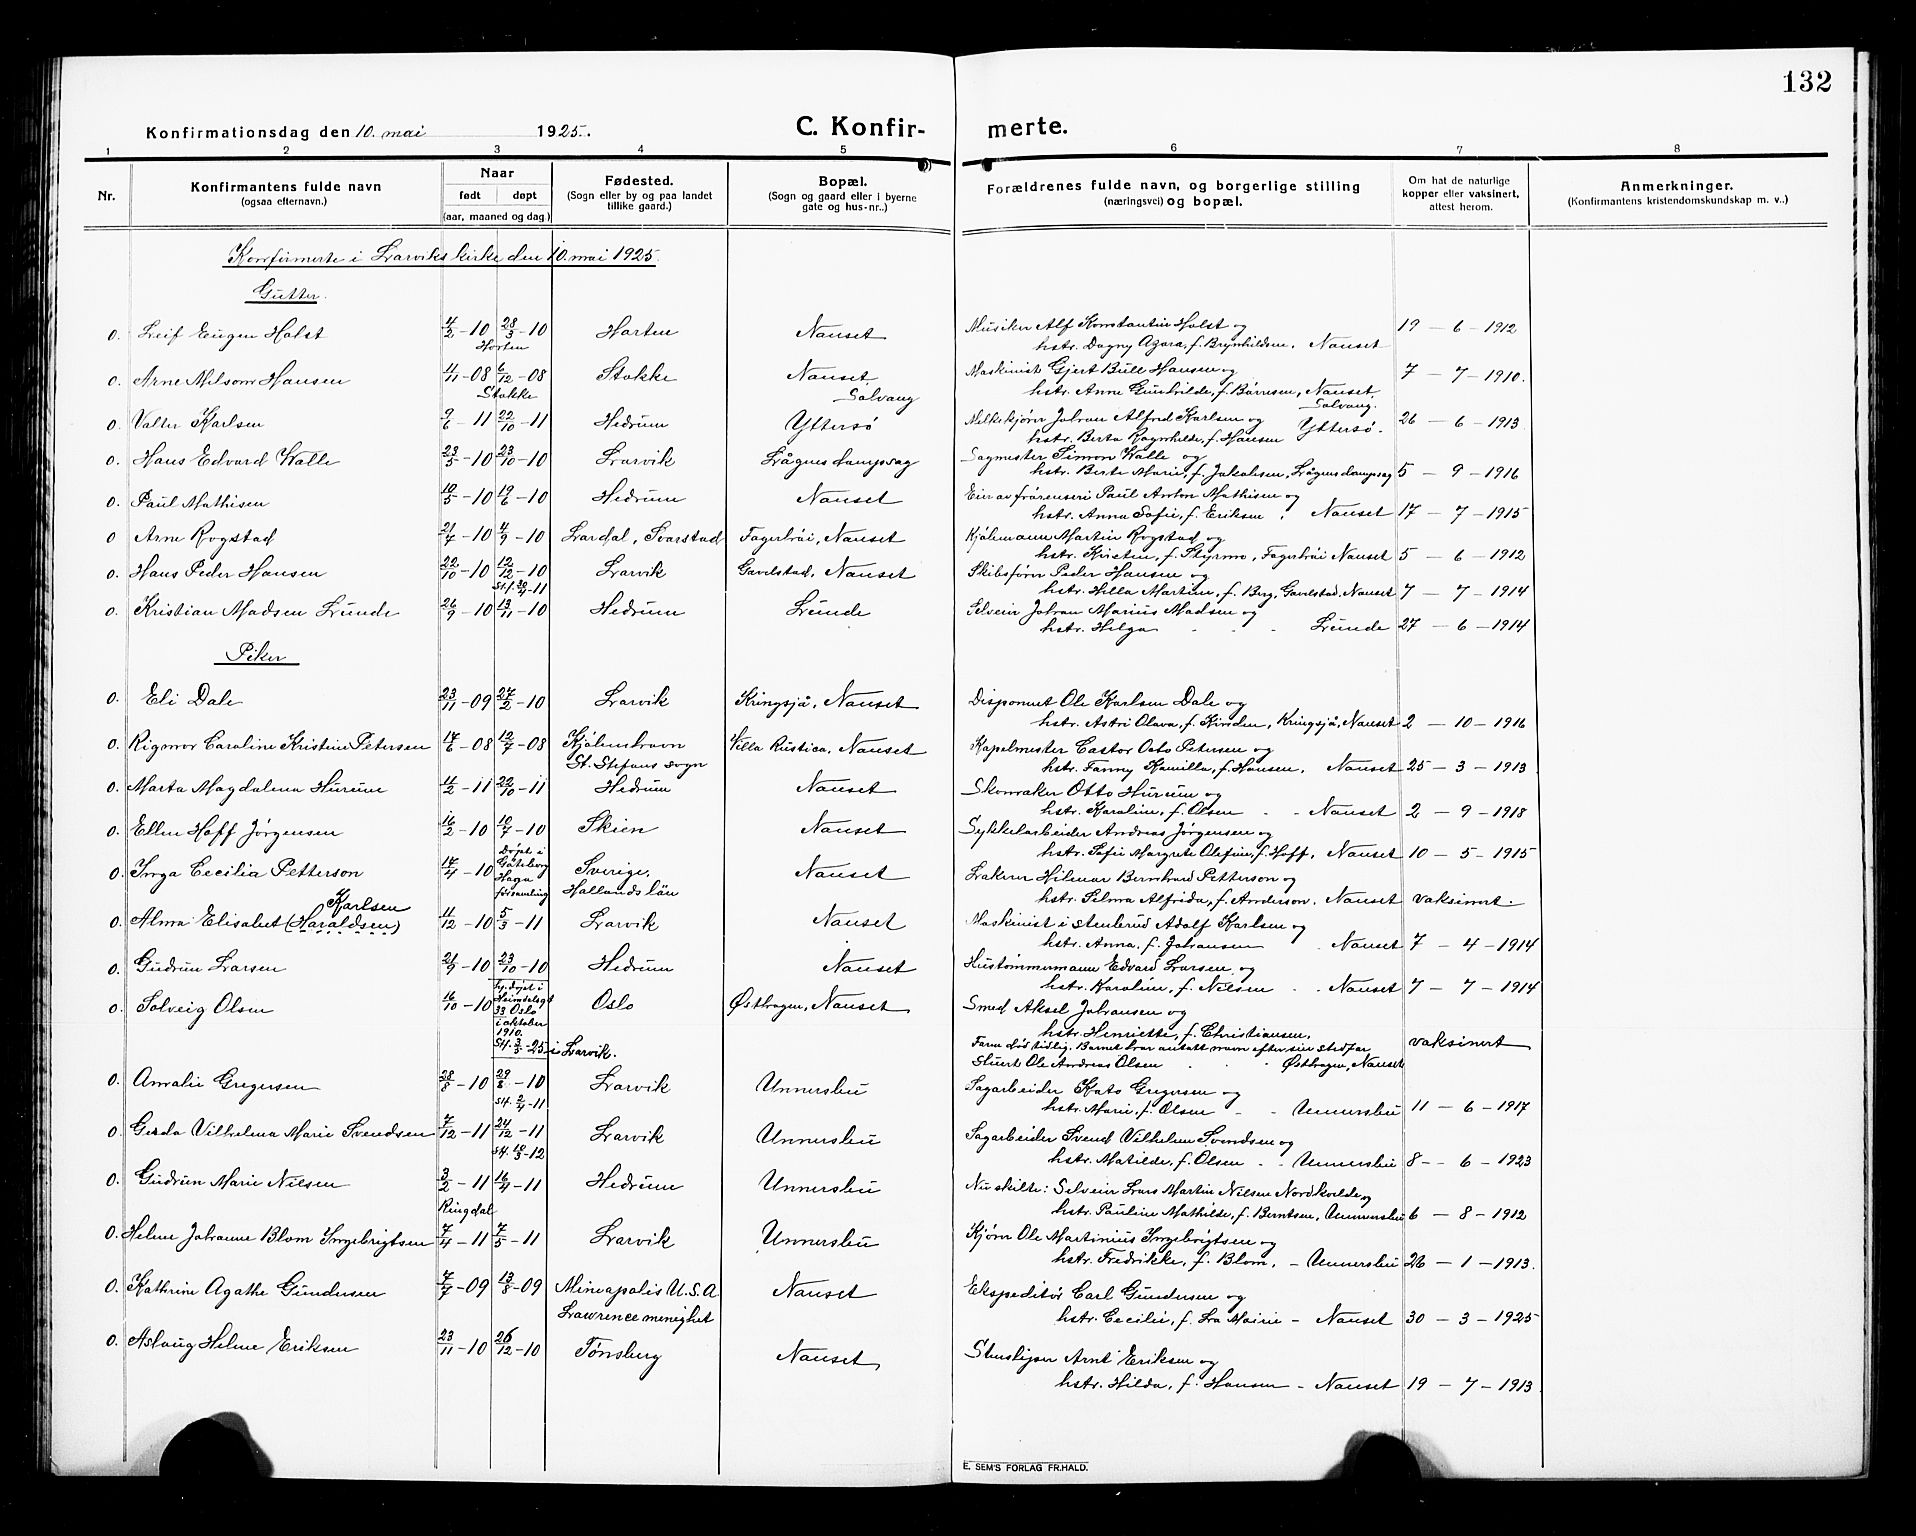 132
Konfirmationsdag den 10. mai 1925. C. Konfir- merte.
1 2 3 4 5 6 7 8
Nr. Konfirmantens fulde navn (ogsaa efternavn.) Naar født døpt (aar, maaned og dag) Fødested. (Sogn eller by og paa landet tillike gaard.) Bopæl. (Sogn og gaard eller i byerne gate og hus-nr..) Forældrenes fulde navn, og borgerlige stilling (næringsvei) og bopæl. Om hat de naturlige kopper eller vaksinert, attest herom. Anmerkninger. (Konfirmantens kristendomskundskap m. v..)
Konfirmerte i Larviks kirke den 10. mai 1925.
Gutter.
0. Leif Eugen Holst 4/2-10 28/3-10 Horten Nanset Musiker Alf Konstantin Holst og 19-6-1912
Horten hstr. Dagny Azora, f. Brynhildsen, Nanset
0. Arne Milsom Hansen 4/11-08 6/12-08 Stokke Nanset Maskinist Gjert Bull Hansen og 7-7-1910.
Stokke Solvang hstr. Anne Gunhilde, f. Børresen, Nanset, Solvang.
0. Valter Karlsen 9/6-11 22/10-11 Hedrum Yttersø Melkekjører Johan Alfred Karlsen og 26-6-1913
hstr. Berta Ragnhilde, f. Hansen Yttersø.
0. Hans Edvard Walle 23/5-10 23/10-10 Larvik Lågens dampsag Sagmester Simon Walle og
hstr. Berte Marie, f. Jakobsen, Lågens dampsag 5-9-1916
0. Paul Mathisen 10/5-10 19/6-10 Hedrum Nanset Eier av frørenseri Paul Anton Mathisen og
hstr. Anna Sofie, f. Eriksen, Nanset 17-7-1915
0 Arne Rogstad 21/7-10 4/9-10 Lardal, Svarstad Fagerli, Nanset Kjølemann Martin Rogstad og
hstr. Kristen, f. Styrmo, Nanset 5-6-1912
0. Hans Peder Hansen 22/10-10 12/12-10 Larvik Gavelstad, Nanset Skibsfører Peder Hansen og
st. 30/4-11 hstr. Hilla Martine, f. Berg, Gavelstad, Nanset 7-7-1914
0. Kristian Madsen Lunde 26/9-10 13/11-10 Hedrum Lunde Selveier Johan Marius Madsen og
hstr. Helga - - - Lunde 27-6-1914
Piker
0. Eli Dale 23/11-09 27/2-10 Larvik Kringsjå, Nanset Disponent Ole Karlsen Dale og
hstr. Astri Olava, f. Kinden, Kringsjå, Nanset 2-10-1916
0. Rigmor Caroline Kristine Petersen 17/6-08 12/7-08 Kjøbenhavn Villa Rustica, Nanset Kapelmester Castor Osto Petersen og
St. Stefans sogn hstr. Fanny Kamilla, f. Hansen, Nanset 25-3-1913
0. Marta Magdalena Hurum 4/2-11 22/10-11 Hedrum Nanset Skomaker Otto Hurum og
hstr. Karoline, f. Olsen - - Nanset 2-9-1918
0. Ellen Hoff Jørgensen 16/2-10 10/7-10 Skien Nanset Sykkelarbeider Andreas Jørgensen og
hstr. Sofie Margrete Olefine, f. Hoff, Nanset 10-5-1915
0. Inga Cecilia Petterson 17/4-10 Døpt i Gøteborg Haga församling Sverige, Hallands län Nanset Lakerer Hilmar Bernhard Petterson og
hstr. Selma Alfrida, f. Anderson, Nanset vaksinert.
Karlsen
0. Alma Elisabet (Haraldsen) 4/12-10 5/3-11 Larvik Nanset Maskinist i stenbrud Adolf Karlsen og
hstr. Anna, f. Johansen - Nanset 7-4-1914
0. Gudrun Larsen 21/9-10 23/10-10 Hedrum Nanset Hustømmermann Edvard Larsen og
hstr. Karoline, f. Nilsen - - Nanset 7-7-1914
0. Solveig Olsen 16/10-10 døpt i Heimdalsgt 33 Oslo i oktober 1910. Oslo Østhagen, Nanset Smed Aksel Johansen og
st. 3/5-25 i Larvik. hstr. Henriette, f. Christiansen,
Faren død tidlig. Barnet har antatt navn efter sin stedfar vaksinert
Stuert Ole Andreas Olsen - - Østhagen, Nanset
0. Amalie Gregersen 28/8-10 29/8-10 Larvik Unnersbu Sagarbeider Kato Gregersen og
st. 2/4-11 hstr. Marie, f. Olsen - - Unnersbu 11-6-1917
0. Gerda Vilhelma Marie Svendsen 7/12-11 24/12-11 Larvik Unnersbu Sagarbeider Svend Vilhelm Svendsen og
st. 10/3-12 hstr. Matilde, f. Olsen - - Unnersbu 8-6-1923
0. Gudrun Marie Nilsen 3/2-11 16/4-11 Hedrum Unnersbu Nu skilte: Selveier Lars Martin Nilsen Nordkvelde og
Ringdal hstr. Pauline Mathilde, f. Berntsen, Unnersbu 6-8-1912
0. Helene Johanne Blom Ingebrigtsen 7/4-11 7/5-11 Larvik Unnersbu Kjører Ole Martinius Ingebrigtsen og
hstr. Fredrikke, f. Blom, - Unnersbu 26-1-1913.
0. Kathrine Agathe Gundersen 7/7-09 13/8-09 Mineapolis U.S.A. Nanset Ekspeditør Carl Gundersen og
Lawrence menighet hstr. Cecilie, f. La Mairie - Nanset 30-3-1925
0. Aslaug Helene Eriksen 23/11-10 26/12-10 Tønsberg Nanset Stensliper Arnt Eriksen og
hstr. Hilda, f. Hansen - Nanset 19-7-1913
E. SEM'S FORLAG FR.HALD.